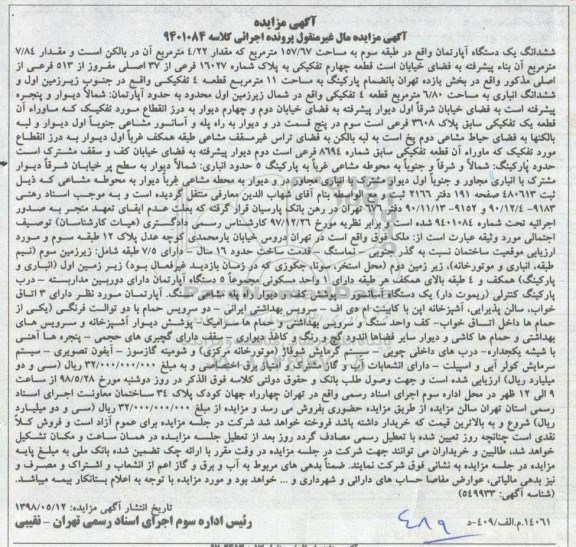 آگهی مزایده
آگهی مزایده مال غیرمنقول پرونده اجرائی کلاسه ۹۴۰۱۰۸۴
ششدانگ یک دستگاه آپارتمان واقع در طبقه سوم به مساحت ۱۵۷/۶۷ مترمربع که مقدار ۴/۲۲ مترمربع آن در بالکن است و مقدار ۷/۸۴
مترمربع آن بناء پیشرفته به فضای خیابان است قطعه چهارم تفکیکی به پلاک شماره ۱۶۰۲۷ فرعی از ۳۷ اصلی مفروز از ۵۱۳ فرعی از
اصلی مذکور واقع در بخش یازده تهران بانضمام پارکینگ به مساحت ۱۱ مترمربع قطعه ۴ تفکیکی واقع در جنوب زیرزمین اول و
ششدانگ انباری به مساحت ۶/۸۰ مترمربع قطعه ۴ تفکیکی واقع در شمال زیرزمین اول محدود به حدود آپارتمان: شمالاً دیوار و پنجره
پیشرفته است به فضای خیابان شرقاً اول دیوار پیشرفته به فضای خیابان دوم و چهارم دیوار به درز انقطاع مورد تفکیک که ماوراء آن
قطعه یک تفکیکی سابق پلاک ۳۶۰۸ فرعی است سوم در پنج قسمت در و دیوار به راه پله و آسانسور مشاعی جنوباً اول دیوار و لبه
بالکنها به فضای حیاط مشاعی دوم پخ است به لبه بالکن به فضای تراس غیرمسقف مشاعی طبقه همکف غرباً اول دیوار به درز انقطاع
مورد تفکیک که ماوراء آن قطعه تفکیکی سابق شماره ۸۶۹۴ فرعی است دوم دیوار پیشرفته به فضای خیابان کف و سقف مشترک است
حدود پارکینگ: شمالاً و شرقاً و جنوباً به محوطه مشاعی غرباً به پارکینگ ۵ حدود انباری: شمالاً دیوار به سطح پر خیابان شرقاً دیوار
مشترک با انباری مجاور و جنوباً اول دیوار مشترک با انباری مجاور در و دیوار به محطه مشاعی غرباً دیوار به محوطه مشاعی که ذیل
ثبت ۴۸۰۶۱۳ صفحه ۱۹۱ دفتر ۲۱۶۶ ثبت و مع‌الواسطه بنام آقای شهاب الدین معارفی منتقل گردیده است و به موجب اسناد رهنی
۹۱۸۳- ۹۰/۱۲/۴ و ۹۱۵۲- ۹۰/۱۱/۱۳ دفتر ۶۷۱ تهران در رهن بانک پارسیان قرار گرفته که بعلت عدم ایفای تعهد منجر به صدور
اجرائیه تحت شماره ۹۴۰۱۰۸۴ شده است و برابر نظریه مورخ ۹۷/۱۲/۲۶ کارشناس رسمی دادگستری (هیات کارشناسان) توصیف
اجتمالی مورد وثیقه عبارت است از: ملک فوق واقع است در تهران دروس خیابان یارمحمدی کوچه عدل پلاک ۱۲ طبقه سوم و مورد
ارزیابی موقعیت ساختمان نسبت به گذر جنوبی – نماسنگ – قدمت ساخت حدود ۱۶ سال – دارای ۷/۵ طبقه شامل: زیرزمین سوم (نیم
طبقه، انباری و موتورخانه)، زیر زمین دوم (محل استخر، سونا، جکوزی که در زمان بازدید غیرفعال بود) زیر زمین اول (انباری و
پارکینگ) همکف و ۴ طبقه بالای همکف هر طبقه دارای ۱ واحد مسکونی مجموعاً ۵ دستگاه آپارتمان دارای دوربین مداربسته – درب
پارکینگ کنترلی (ریموت دار) یک دستگاه آسانسور – پوشش کف و دیوار راه پله مشاعی سنگ. آپارتمان مورد نظر دارای ۳ اتاق
خواب، سالن پذیرایی، آشپزخانه اپن با کابینت ام دی اف – سرویس بهداشتی ایرانی – دو سرویس حمام با دو توالت فرنگی (یکی از
حمام ها داخل اتاق خواب- کف واحد سنگ، سرویس بهداشتی و حمام ها سرامیک – پوشش دیوار آشپزخانه و سرویس های
بهداشتی و حمام ها کاشی و دیوار سایر فضاها اندود گچ و رنگ و کاغذ دیواری – سقف دارای گچبری های حجمی – پنجره ها آهنی
با شیشه یکجداره- درب های داخلی چوبی – سیستم گرمایش شوفاژ (موتورخانه مرکزی) و شومینه گازسوز – آیفون تصویری – سیستم
سرمایش کولر آبی و اسپیلت – دارای انشعابات آب و گاز مشترک و امتیاز برق اختصاصی و به مبلغ ۳۲/۰۰۰/۰۰۰/۰۰۰ ریال (سی و دو
میلیارد ریال) ارزیابی شده است و جهت وصول طلب بانک و حقوق دولتی کلاسه فوق الذکر در روز دوشنبه مورخ ۹۸/۵/۲۸ از ساعت
۹ الی ۱۲ ظهر در محل اداره سوم اجرای اسناد رسمی واقع در تهران چهارراه جهان کودک پلاک ۳۴ ساختمان معاونت اجرای اسناد
رسمی استان تهران سالن مزایده از طریق مزایده حضوری بفروش می رسد و مزایده از مبلغ ۳۲/۰۰۰/۰۰۰/۰۰۰ ریال (سی و دو میلیارد
ریال) شروع و به بالاترین قیمت که خریدار داشته باشد فروخته خواهد شد شرکت در جلسه مزایده برای عموم آزاد است و فروش کلاً
نقدی است چنانچه روز تعیین شده با تعطیل رسمی مصادف گردد روز بعد از تعطیل جلسه مزایده در همان ساعت و مکان تشکیل
خواهد شد، طالبین و خریداران می توانند جهت شرکت در جلسه مزایده در وقت مقرر با ارائه چک تضمین شده بانک ملی به مبلغ پایه
مزایده در جلسه مزایده به نشانی فوق شرکت نمایند. ضمناً بدهی های مربوط به آب و برق و گاز اعم از انشعاب و اشتراک و مصرف و
نیز بدهی مالیاتی، عوارض مفاصا حساب های دارائی و شهرداری و ... خواهد بود و مورد مزایده با توجه به اعلام بستانکار بیمه میباشد.
(شناسه آگهی: ۵۴۹۹۳۳)
تاریخ انتشار آگهی مزایده: ۱۳۹۸/۰۵/۱۲
۱۴۰۶۱.م.الف/۴۰۹-د
رئیس اداره سوم اجرای اسناد رسمی تهران – نقیبی
۴۸۹